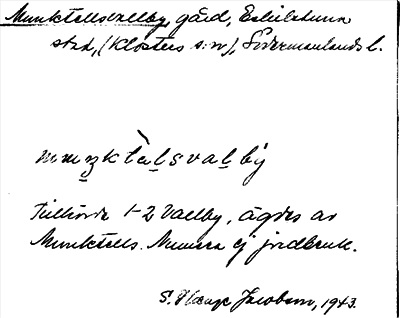 Munktellsvallby, gård, Eskilstuna
stad, (Klosters sn), Södermanlands l.
mnuŋktɛ̀l̲sval̲by
Tillhörde 1-2 Vallby, ägdes av
Munktells. Numera ej jordbruk.
S. Jacobson, 1943.